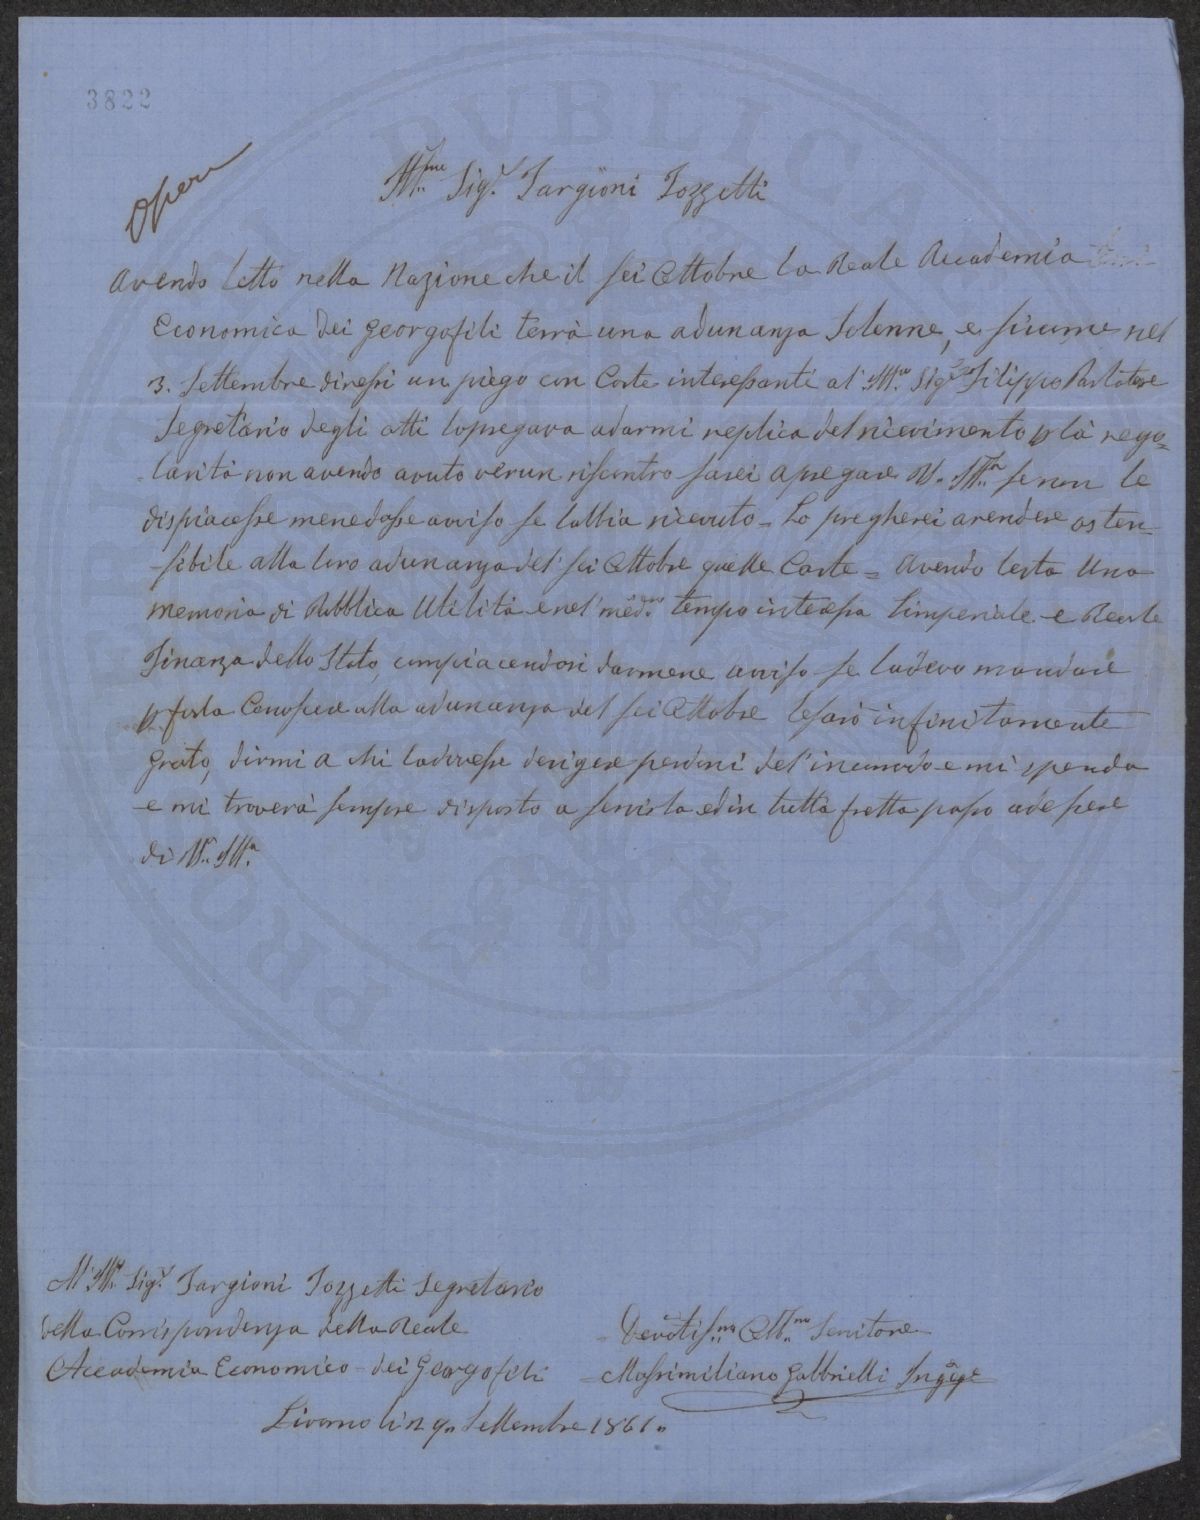 3822
Ill.mo Sig.r Targioni Tozzetti
Avendo letto nella Nazione che il sei Ottobre la Reale Accademia
Economica dei Georgofili terrà una adunanza Solenne, e siccome nel
3. Settembre diressi un piego con Carte interessanti al' Ill.o Sig.r Filippo Parlatore
Segretario degli atti lopregava adarmi replica del ricevimento p la rego=
larità non avendo avuto verun riscontro sarei apregare V. Ill.a se non le
dispiacesse menedasse avviso se labbia ricevuto - Lo pregherei arendere osten-
-sibile alla loro adunanza del' sei Ottobre quelle Carte = Avendo Una
memoria di Pubblica Utilità enel' med.mo tempo interessa l'imperiale e Reale
Finanza dello Stato, compiacendosi darmene avviso se ladevo mandare
p farla Conoscere alla adunanza del sei Ottobre lesarò infinitamente
grato, dirmi a chi ladovessi derigere perdoni del' incomodo e mi sponda
e mi troverà sempre disposto a servirla edin tutta fretta passo adessere
di V. Ill.a
Al' Ill. Sig.r Targioni Tozzetti Segretario
della Corrispondenza della Reale
Accademia Economico dei Georgofili
Devotiss.mo Obb.mo Servitore
Massimiliano Gabbrielli Ing
Livorno li Settembre 1861.
PRO PVBLICAE